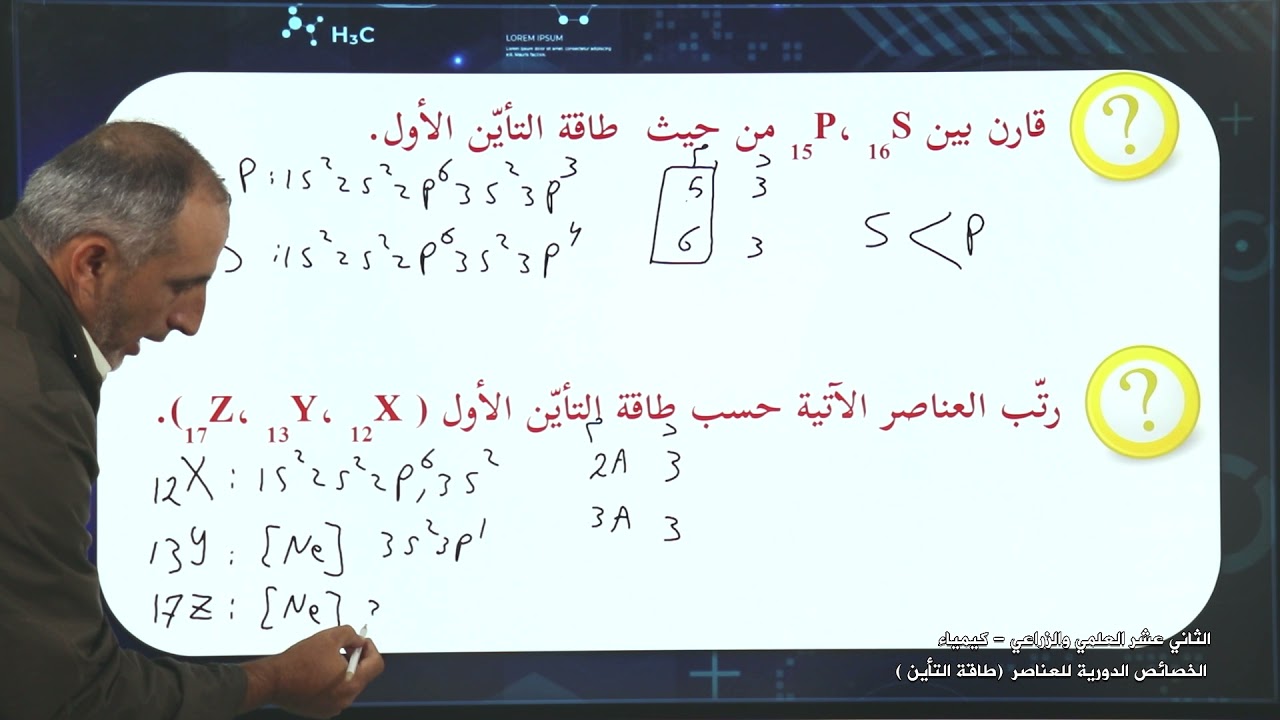 H₃C
LOREM IPSUM
قارن بين ₁₆S ،₁₅P من حيث طاقة التأيّن الأول.
م د
P : 1s² 2s² 2p⁶ 3s² 3p³ 5 3
S : 1s² 2s² 2p⁶ 3s² 3p⁴ 6 3
S < P
رتّب العناصر الآتية حسب طاقة التأيّن الأول ( ₁₂X ،₁₃Y ،₁₇Z).
م د
12X : 1s² 2s² 2p⁶, 3s² 2A 3
13Y : [Ne] 3s² 3p¹ 3A 3
17Z : [Ne]
الثاني عشر العلمي والزراعي - كيمياء
الخصائص الدورية للعناصر (طاقة التأين )